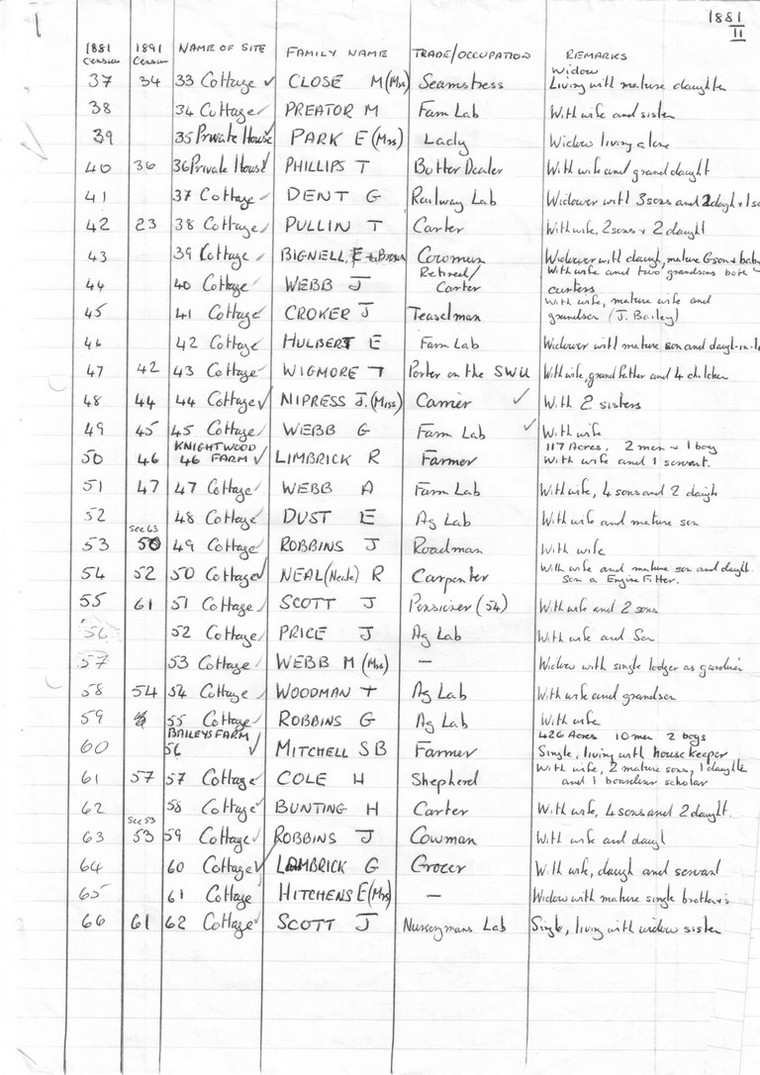 1881
II
1881 Census 1891 Census NAME OF SITE FAMILY NAME TRADE/OCCUPATION REMARKS
37 34 33 Cottage ✓ CLOSE M (Mrs) Seamstress Widow Living with mature daughter
38 34 Cottage ✓ PREATOR M Farm Lab With wife and sister
39 35 Private House ✓ PARK E (Mrs) Lady Widow living alone
40 36 36 Private House ✓ PHILLIPS T Butter Dealer With wife and grand daught
41 37 Cottage ✓ DENT G Railway Lab Widower with 3 sons and 2 daught + 1
42 23 38 Cottage ✓ PULLIN T Carter With wife, 2 sons + 2 daught
43 39 Cottage ✓ BIGNELL E Cowman Widower with daugh, mature Gson + baby
44 40 Cottage ✓ WEBB J Retired/Carter With wife and two grandsons both carters
45 41 Cottage ✓ CROKER J Teaselman With wife, mature wife and grandson (J. Bailey)
46 42 Cottage ✓ HULBERT E Farm Lab Widower with mature son and daught-in-l
47 42 43 Cottage ✓ WIGMORE T Porter on the SWU With wife, grand father and 4 children
48 44 44 Cottage ✓ NIPRESS J. (Miss) Carrier ✓ With 2 sisters
49 45 45 Cottage ✓ WEBB G Farm Lab ✓ With wife
50 46 KNIGHTWOOD 46 FARM ✓ LIMBRICK R Farmer 117 Acres. 2 men + 1 boy With wife and 1 servant.
51 47 47 Cottage ✓ WEBB A Farm Lab With wife, 4 sons and 2 daugh
52 48 Cottage ✓ DUST E Ag Lab With wife and mature son
53 see 63 50 49 Cottage ✓ ROBBINS J Roadman With wife
54 52 50 Cottage ✓ NEAL (Neale) R Carpenter With wife and mature son and daught. Son a Engine Fitter.
55 61 51 Cottage ✓ SCOTT J Pensioner (54) With wife and 2 sons
56 52 Cottage ✓ PRICE J Ag Lab With wife and Son
57 53 Cottage ✓ WEBB M (Mrs) — Widow with single lodger as gardner
58 54 54 Cottage ✓ WOODMAN T Ag Lab With wife and grandson
59 55 Cottage ✓ ROBBINS G Ag Lab With wife
60 BAILEYS FARM 56 ✓ MITCHELL S B Farmer 426 Acres 10 men 2 boys Single, living with house keeper
61 57 57 Cottage ✓ COLE H Shepherd With wife, 2 mature sons, 1 daughte and 1 boarder scholar
62 58 Cottage ✓ BUNTING H Carter With wife, 4 sons and 2 daught.
63 see 53 53 59 Cottage ✓ ROBBINS J Cowman With wife and daugh
64 60 Cottage ✓ LIMBRICK G Grocer With wife, daugh and servant
65 61 Cottage HITCHENS E (Mrs) — Widow with mature single brother's
66 61 62 Cottage ✓ SCOTT J Nurserymans Lab Single, living with widow sister